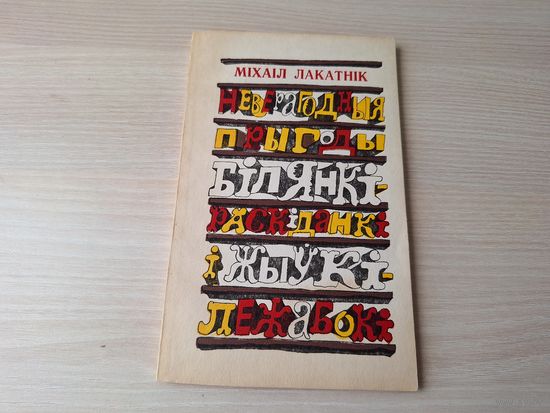 МІХАІЛ ЛАКАТНІК
НЕВЕРАГОДНЫЯ
ПРЫГОДЫ
БІЛЯНКІ-
РАСКІДАНКІ
І ЖЫЎКІ-
ЛЕЖАБОКІ